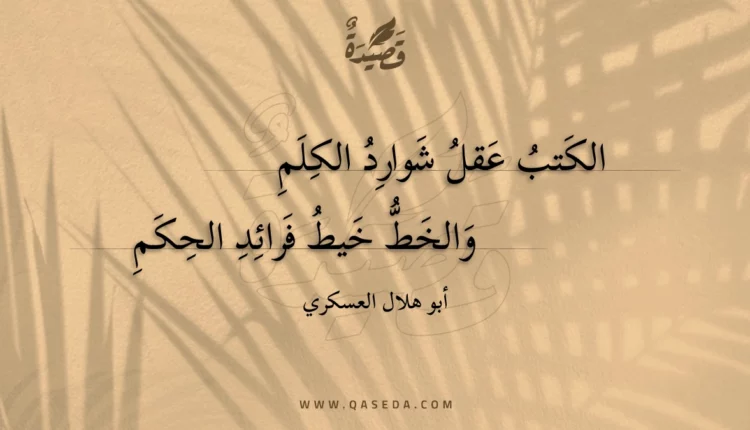 قَصِيدَةٌ
الكَتبُ عَقلُ شَوارِدُ الكِلَمِ
وَالخَطُّ خَيطُ فَرائِدِ الحِكَمِ
أبو هلال العسكري
WWW.QASEDA.COM